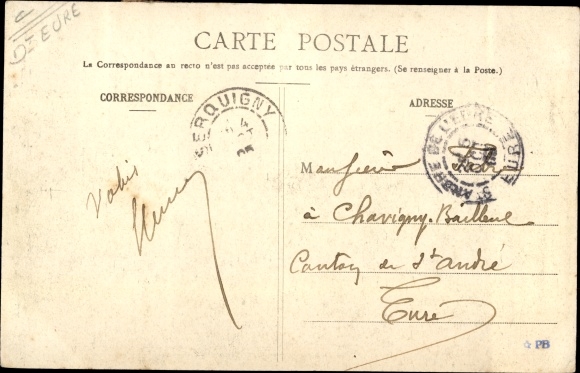 C
Dt EURE
CARTE POSTALE
La Correspondance au recto n'est pas acceptée par tous les pays étrangers. (Se renseigner à la Poste.)
CORRESPONDANCE
ADRESSE
SERQUIGNY
4
ST ANDRE DE L'EURE
EURE
Monsieur
à Chavigny-Bailleul
Canton de St André
Eure
☆ PB